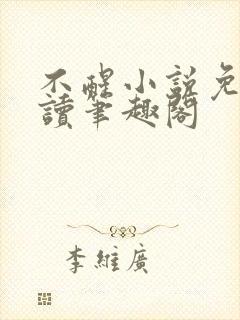 不醒小說免
讀筆趣閣
李維廣